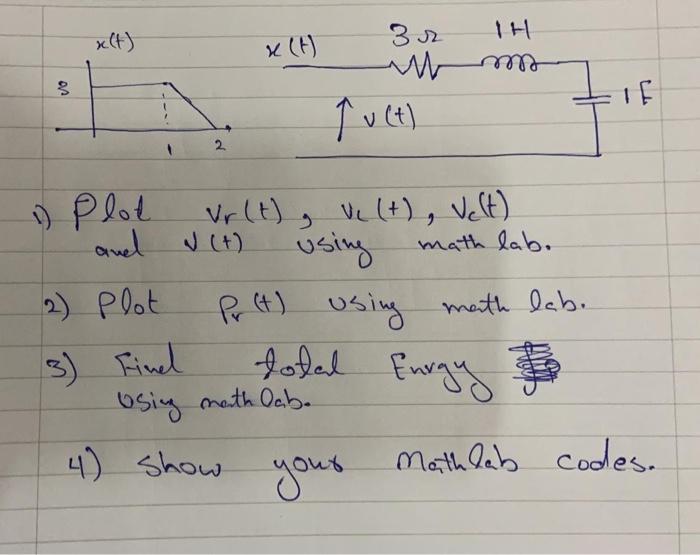 x(t)
3
1 2
x(t) 3Ω 1H
1F
v(t)
1) Plot Vr(t), VL(t), Vc(t)
and V(t) using math lab.
2) Plot Pr(t) using math lab.
3) Find total Enrgy
Using math lab.
4) Show your Mathlab codes.